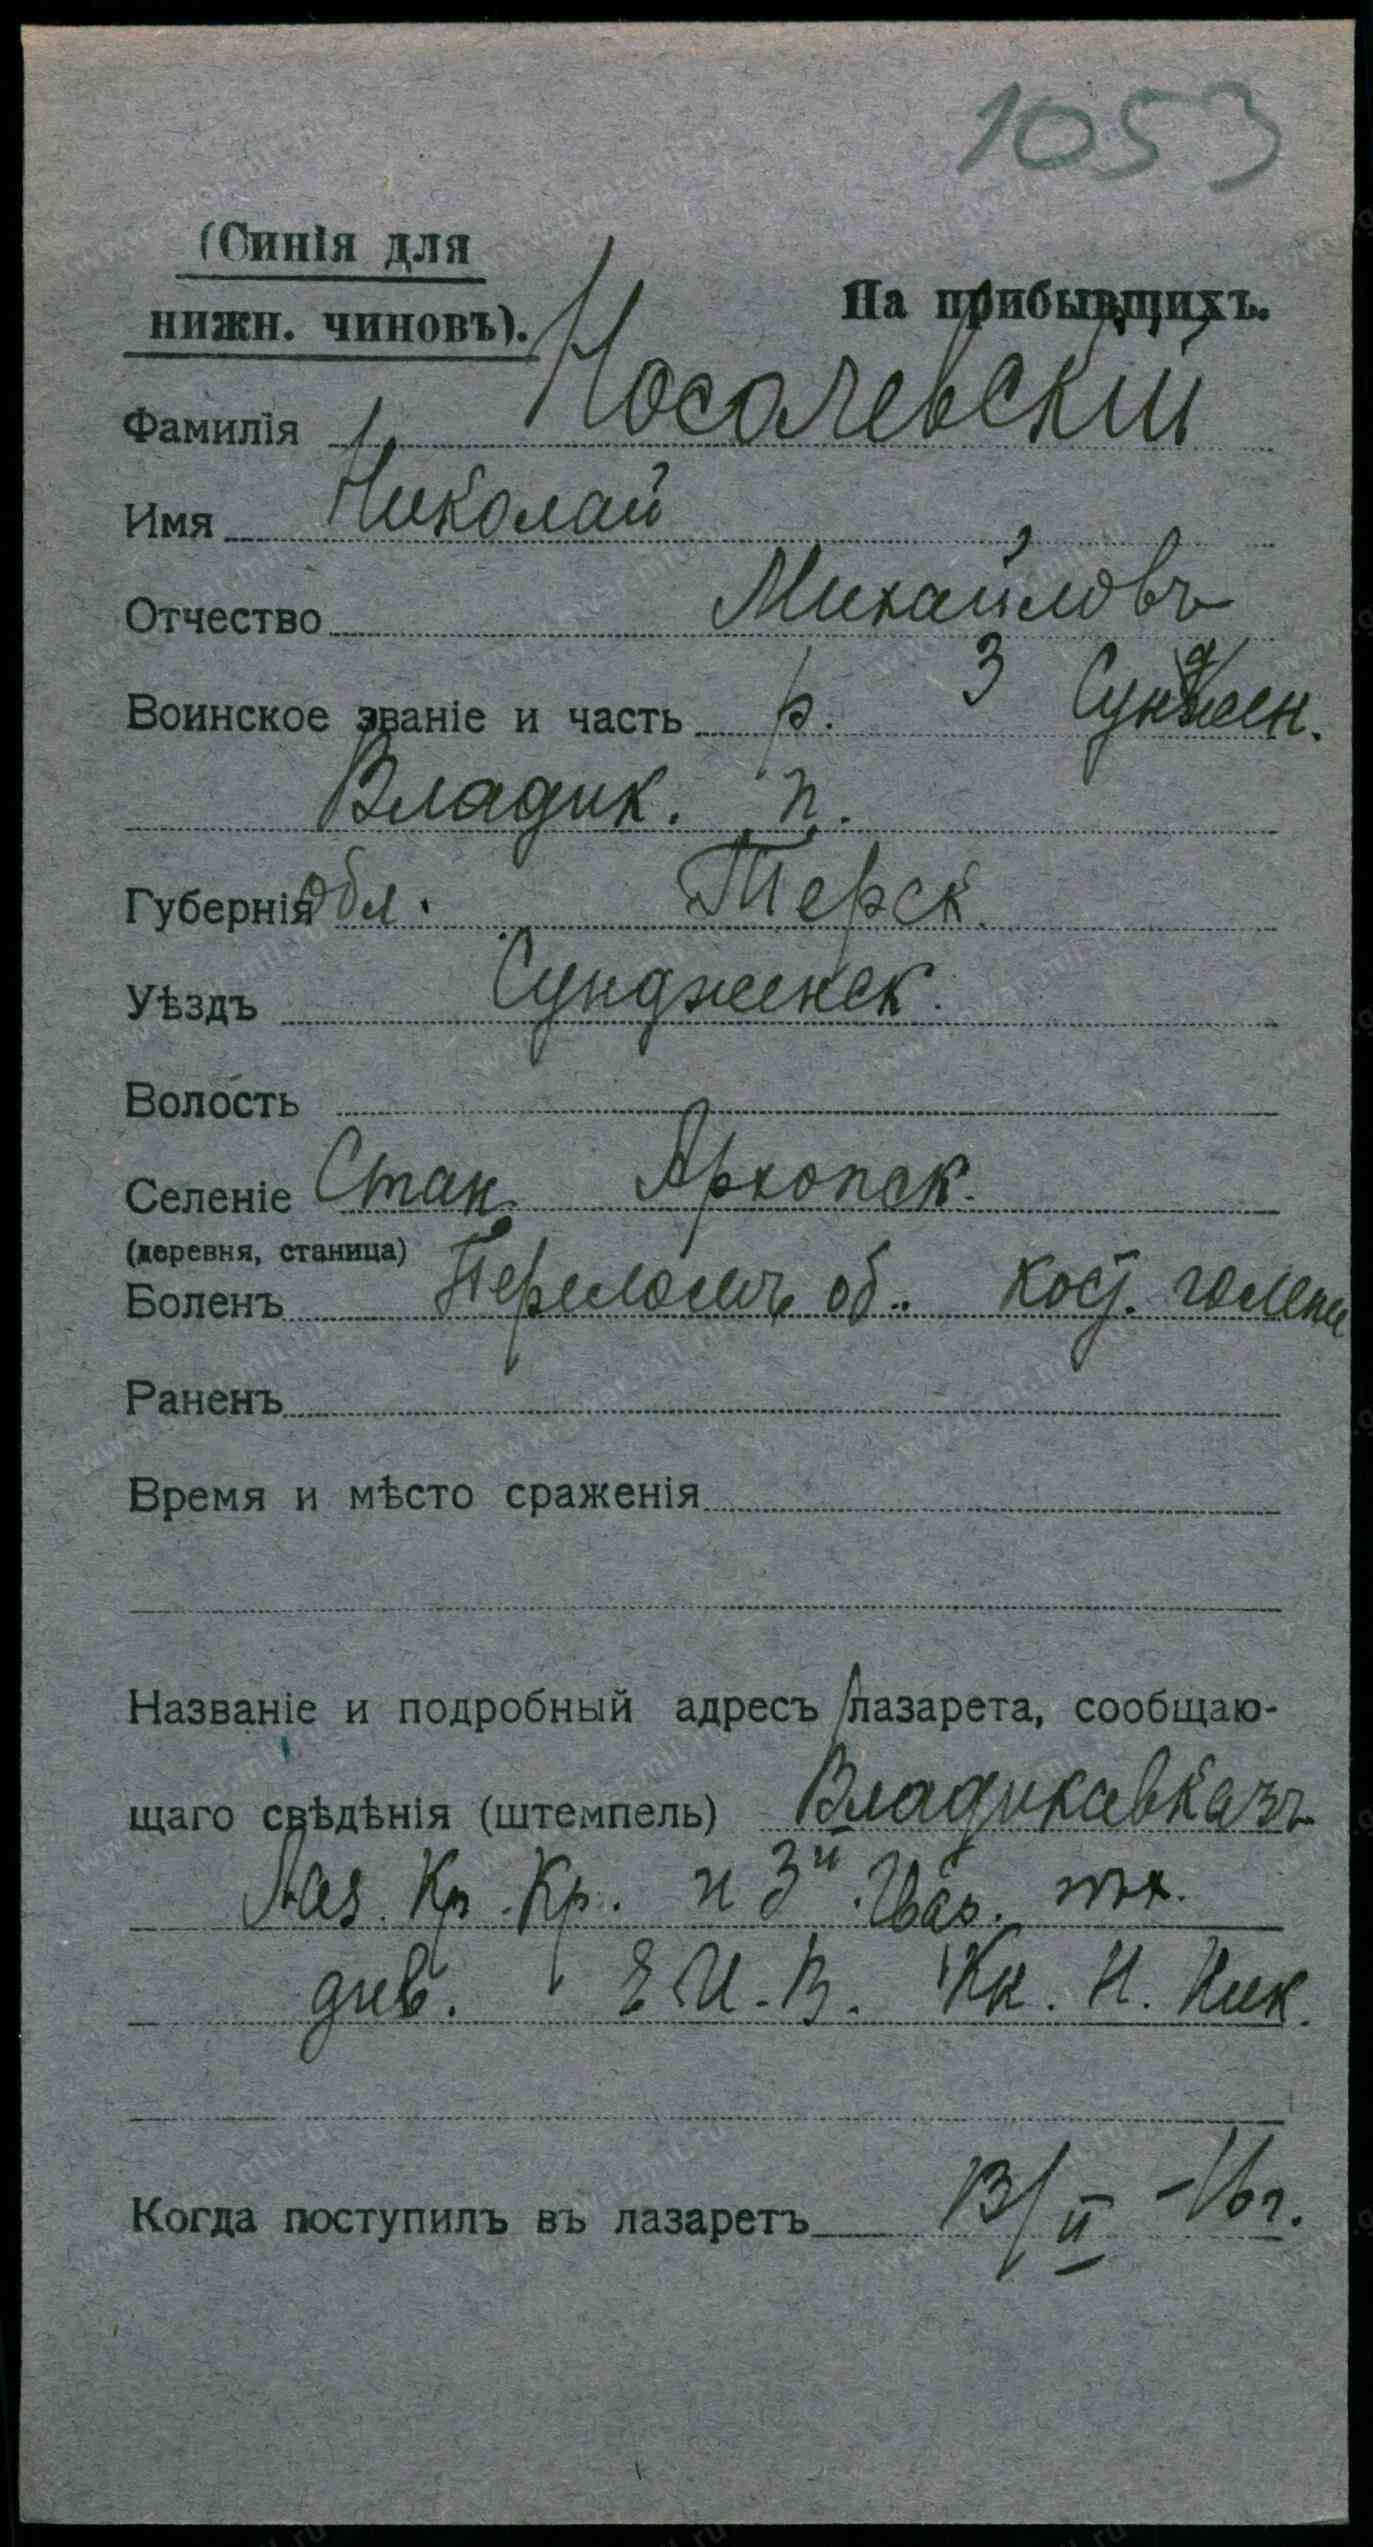 1053
(Синія для
нижн. чиновъ).
На прибывшихъ.
Фамилія Носачевскій
Имя Николай
Отчество Михайловъ
Воинское званіе и часть р. 3 Сунджен.
Владик. п.
Губернія обл. Терск.
Уѣздъ Сунженск.
Волость
Селеніе Стан. Архонск.
(деревня, станица)
Боленъ Переломъ об. кост. голени
Раненъ
Время и мѣсто сраженія
Названіе и подробный адресъ лазарета, сообщаю-
щаго свѣдѣнія (штемпель) Владикавказъ
Лаз. Кр. Кр. и 3й
див. Е.И.В. Кн. Н. Ник.
Когда поступилъ въ лазаретъ 13/II -16 г.